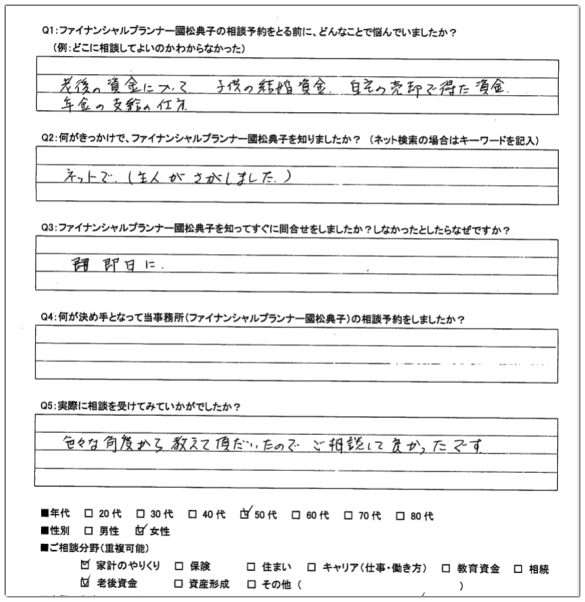 Q1:ファイナンシャルプランナー國松典子の相談予約をとる前に、どんなことで悩んでいましたか？
（例:どこに相談してよいのかわからなかった）
老後の資金について 子供の結婚資金. 自宅の売却で得た資金.
年金の支給の仕方
Q2:何がきっかけで、ファイナンシャルプランナー國松典子を知りましたか？ （ネット検索の場合はキーワードを記入）
ネットで.（主人がさがしました.）
Q3:ファイナンシャルプランナー國松典子を知ってすぐに問合せをしましたか？しなかったとしたらなぜですか？
即日に.
Q4:何が決め手となって当事務所（ファイナンシャルプランナー國松典子）の相談予約をしましたか？
Q5:実際に相談を受けてみていかがでしたか？
色々な角度から教えて頂だいたのでご相談して良かったです
■年代 □ 20代 □ 30代 □ 40代 ☑ 50代 □ 60代 □ 70代 □ 80代
■性別 □ 男性 ☑ 女性
■ご相談分野（重複可能）
☑ 家計のやりくり □ 保険 □ 住まい □ キャリア（仕事・働き方） □ 教育資金 □ 相続
☑ 老後資金 □ 資産形成 □ その他（ ）